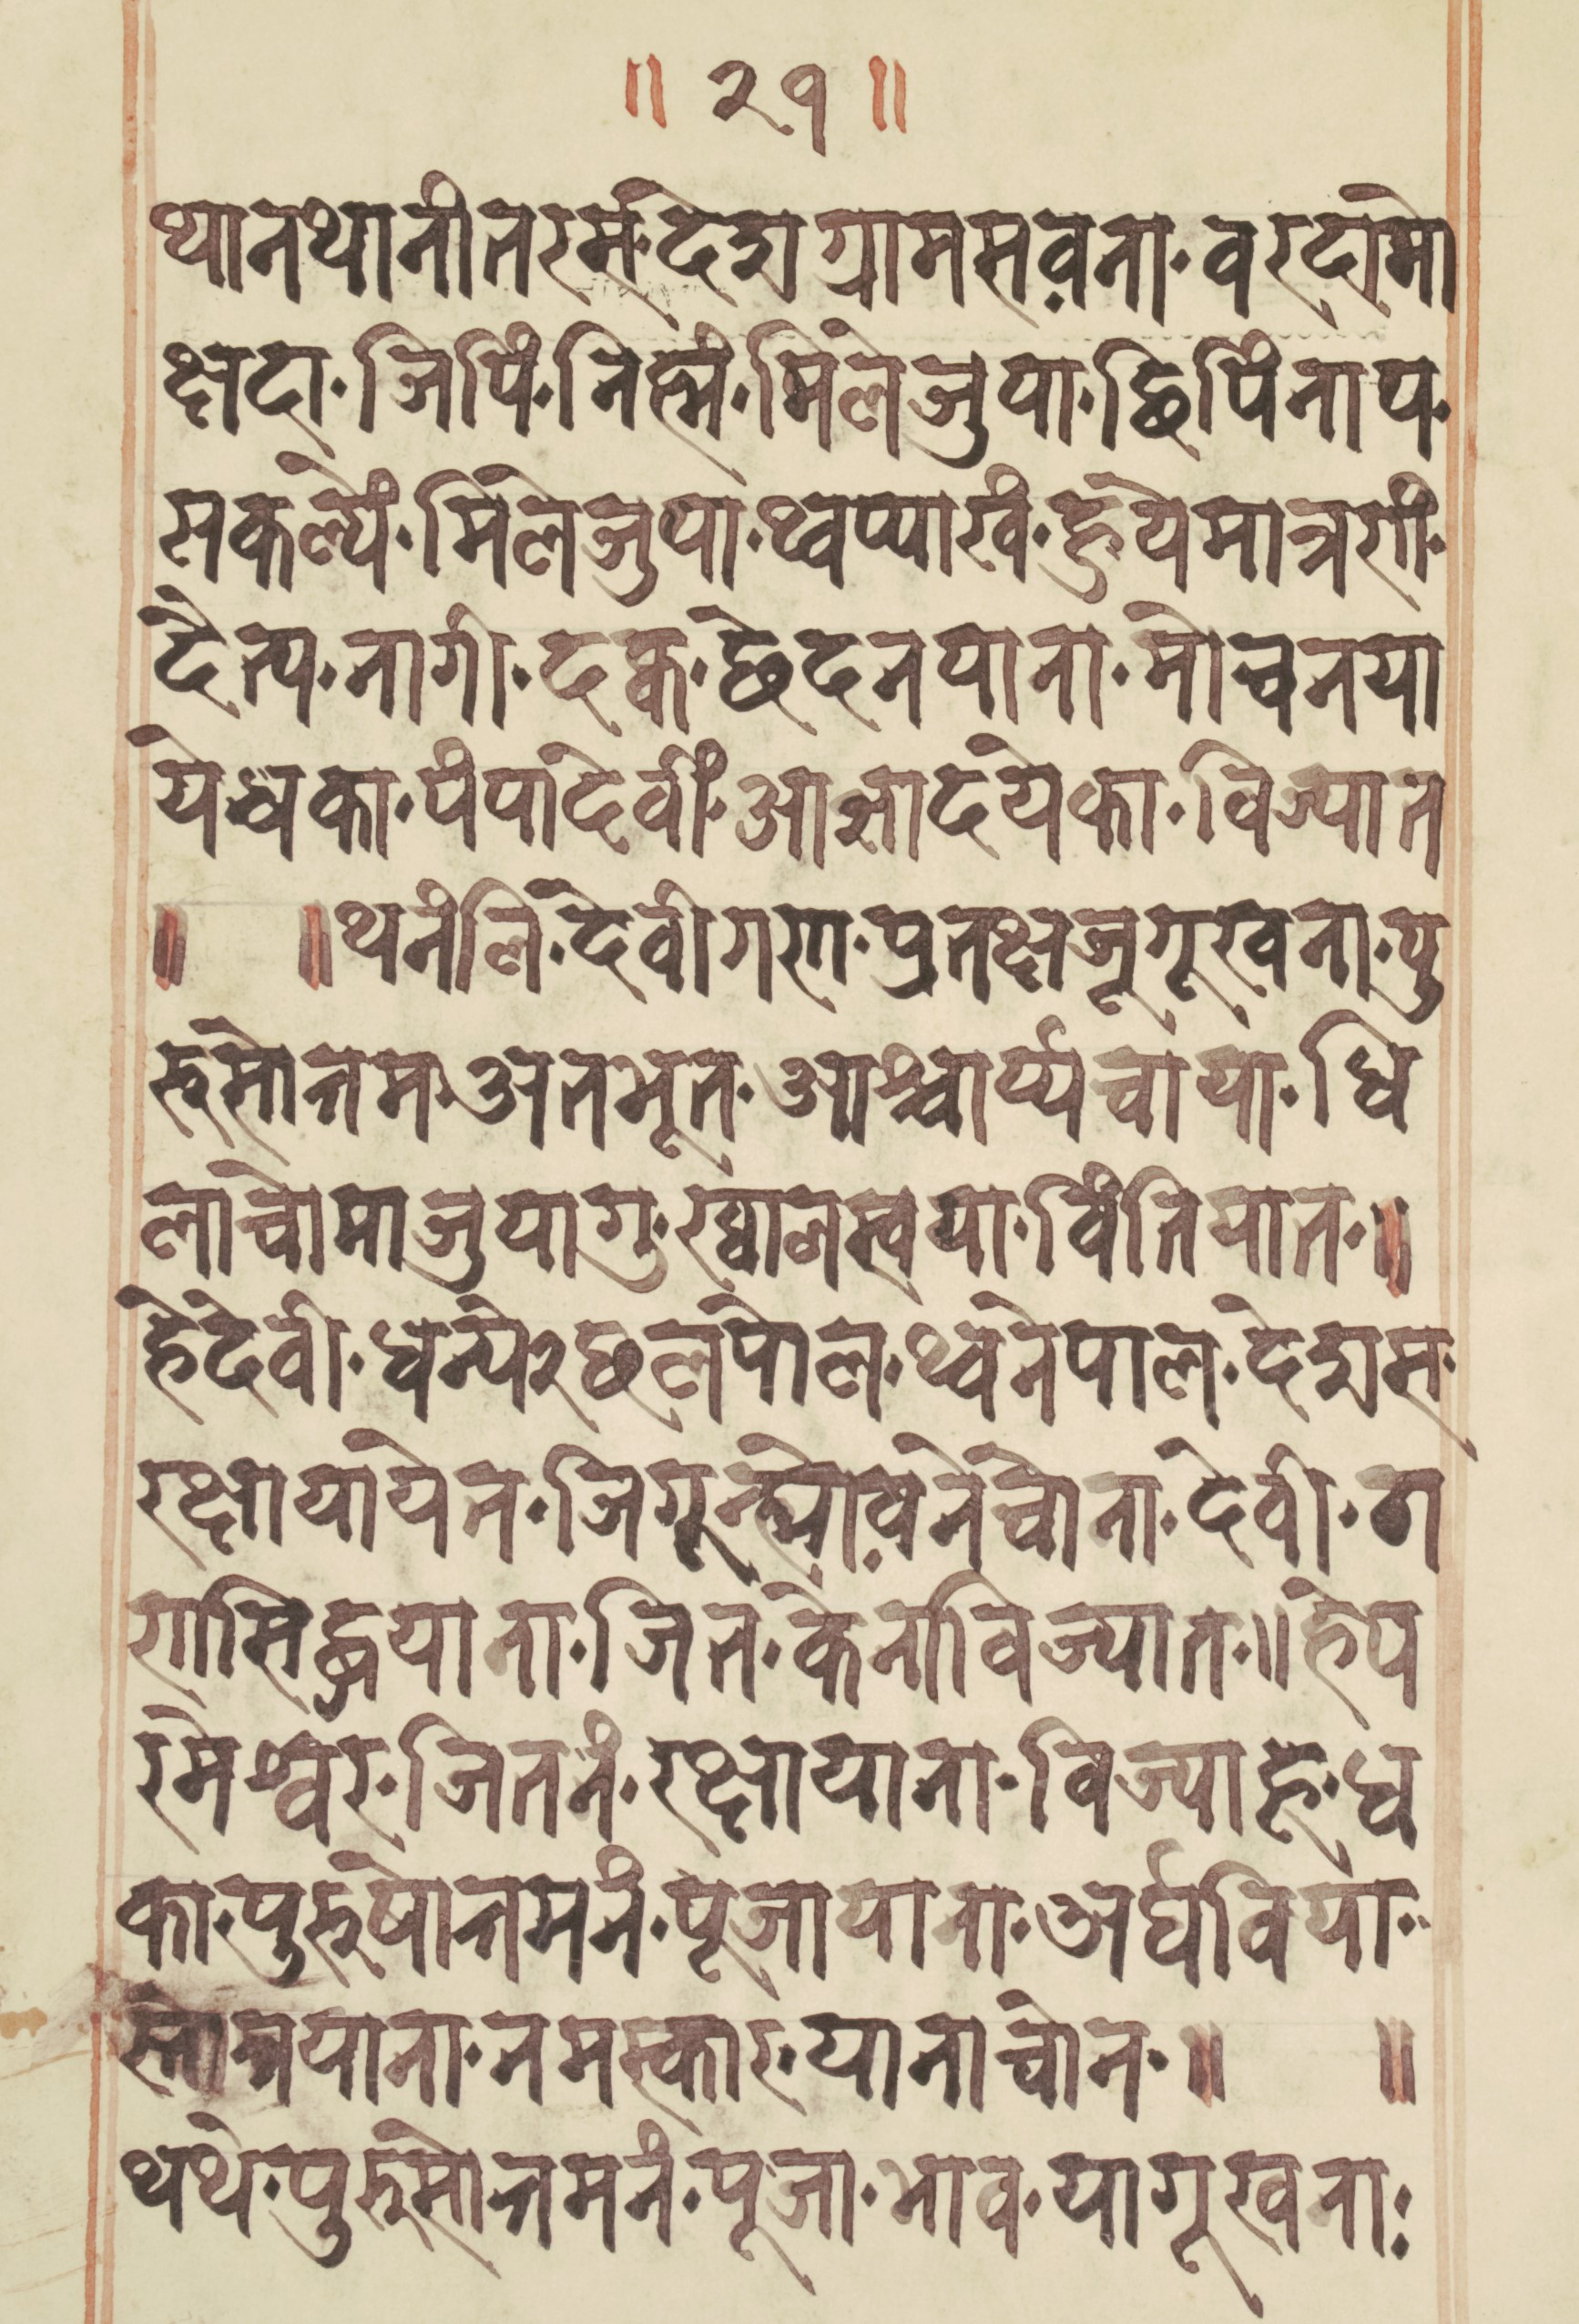 ॥ २१ ॥
थानथानीतरर्म·देशग्रामसव़ना·वरदामो
क्षदा·जिपिं·निह्मं·मिलेजुया·छिपिंनाप·
सकल्यें·मिलेजुया·थ्वप्याखं·हुयेमान्नगी·
दैत्य·नागी·दक्व·छेदनयाना·मोचनया
येधका·पंपादेवीं·आज्ञादयेका·विज्यात
॥ ॥थनंलि·देवीगण·प्रतक्षजूगूखना·पु
रुसोत्तम·अतभूत·आश्चार्य्यचाया·धि
लाचोमाजुयागु·ख्वालस्वया·विंतियात·॥
हेदेवी·धन्ये२छलपोल·थ्वनेपाल·देशस·
रक्षायायेन·जिगूल्ह्योव़नेचोना·देवी·ग
णसिद्धयाना·जित·केनाविज्यात·॥हेप
रमेश्वर·जितनं·रक्षायाना·विज्याहू·ध
का·पुरुषोत्तमनं·पूजायाना·अर्घविया·
स्तोत्रयाना·नमस्कार·यानाचोन·॥ ॥
थथे·पुरुसोत्तमनं·पूजा·भाव·यागूखना·